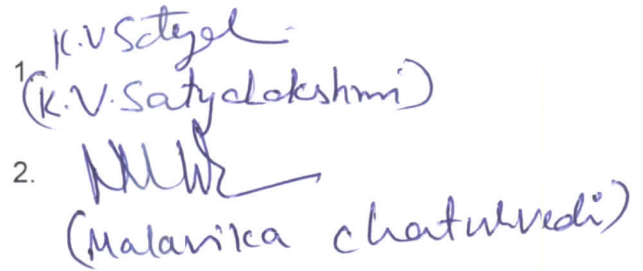 K.V Satyal
1.
(K.V. Satyalakshmi)
2.
(Malavika Chaturvedi)